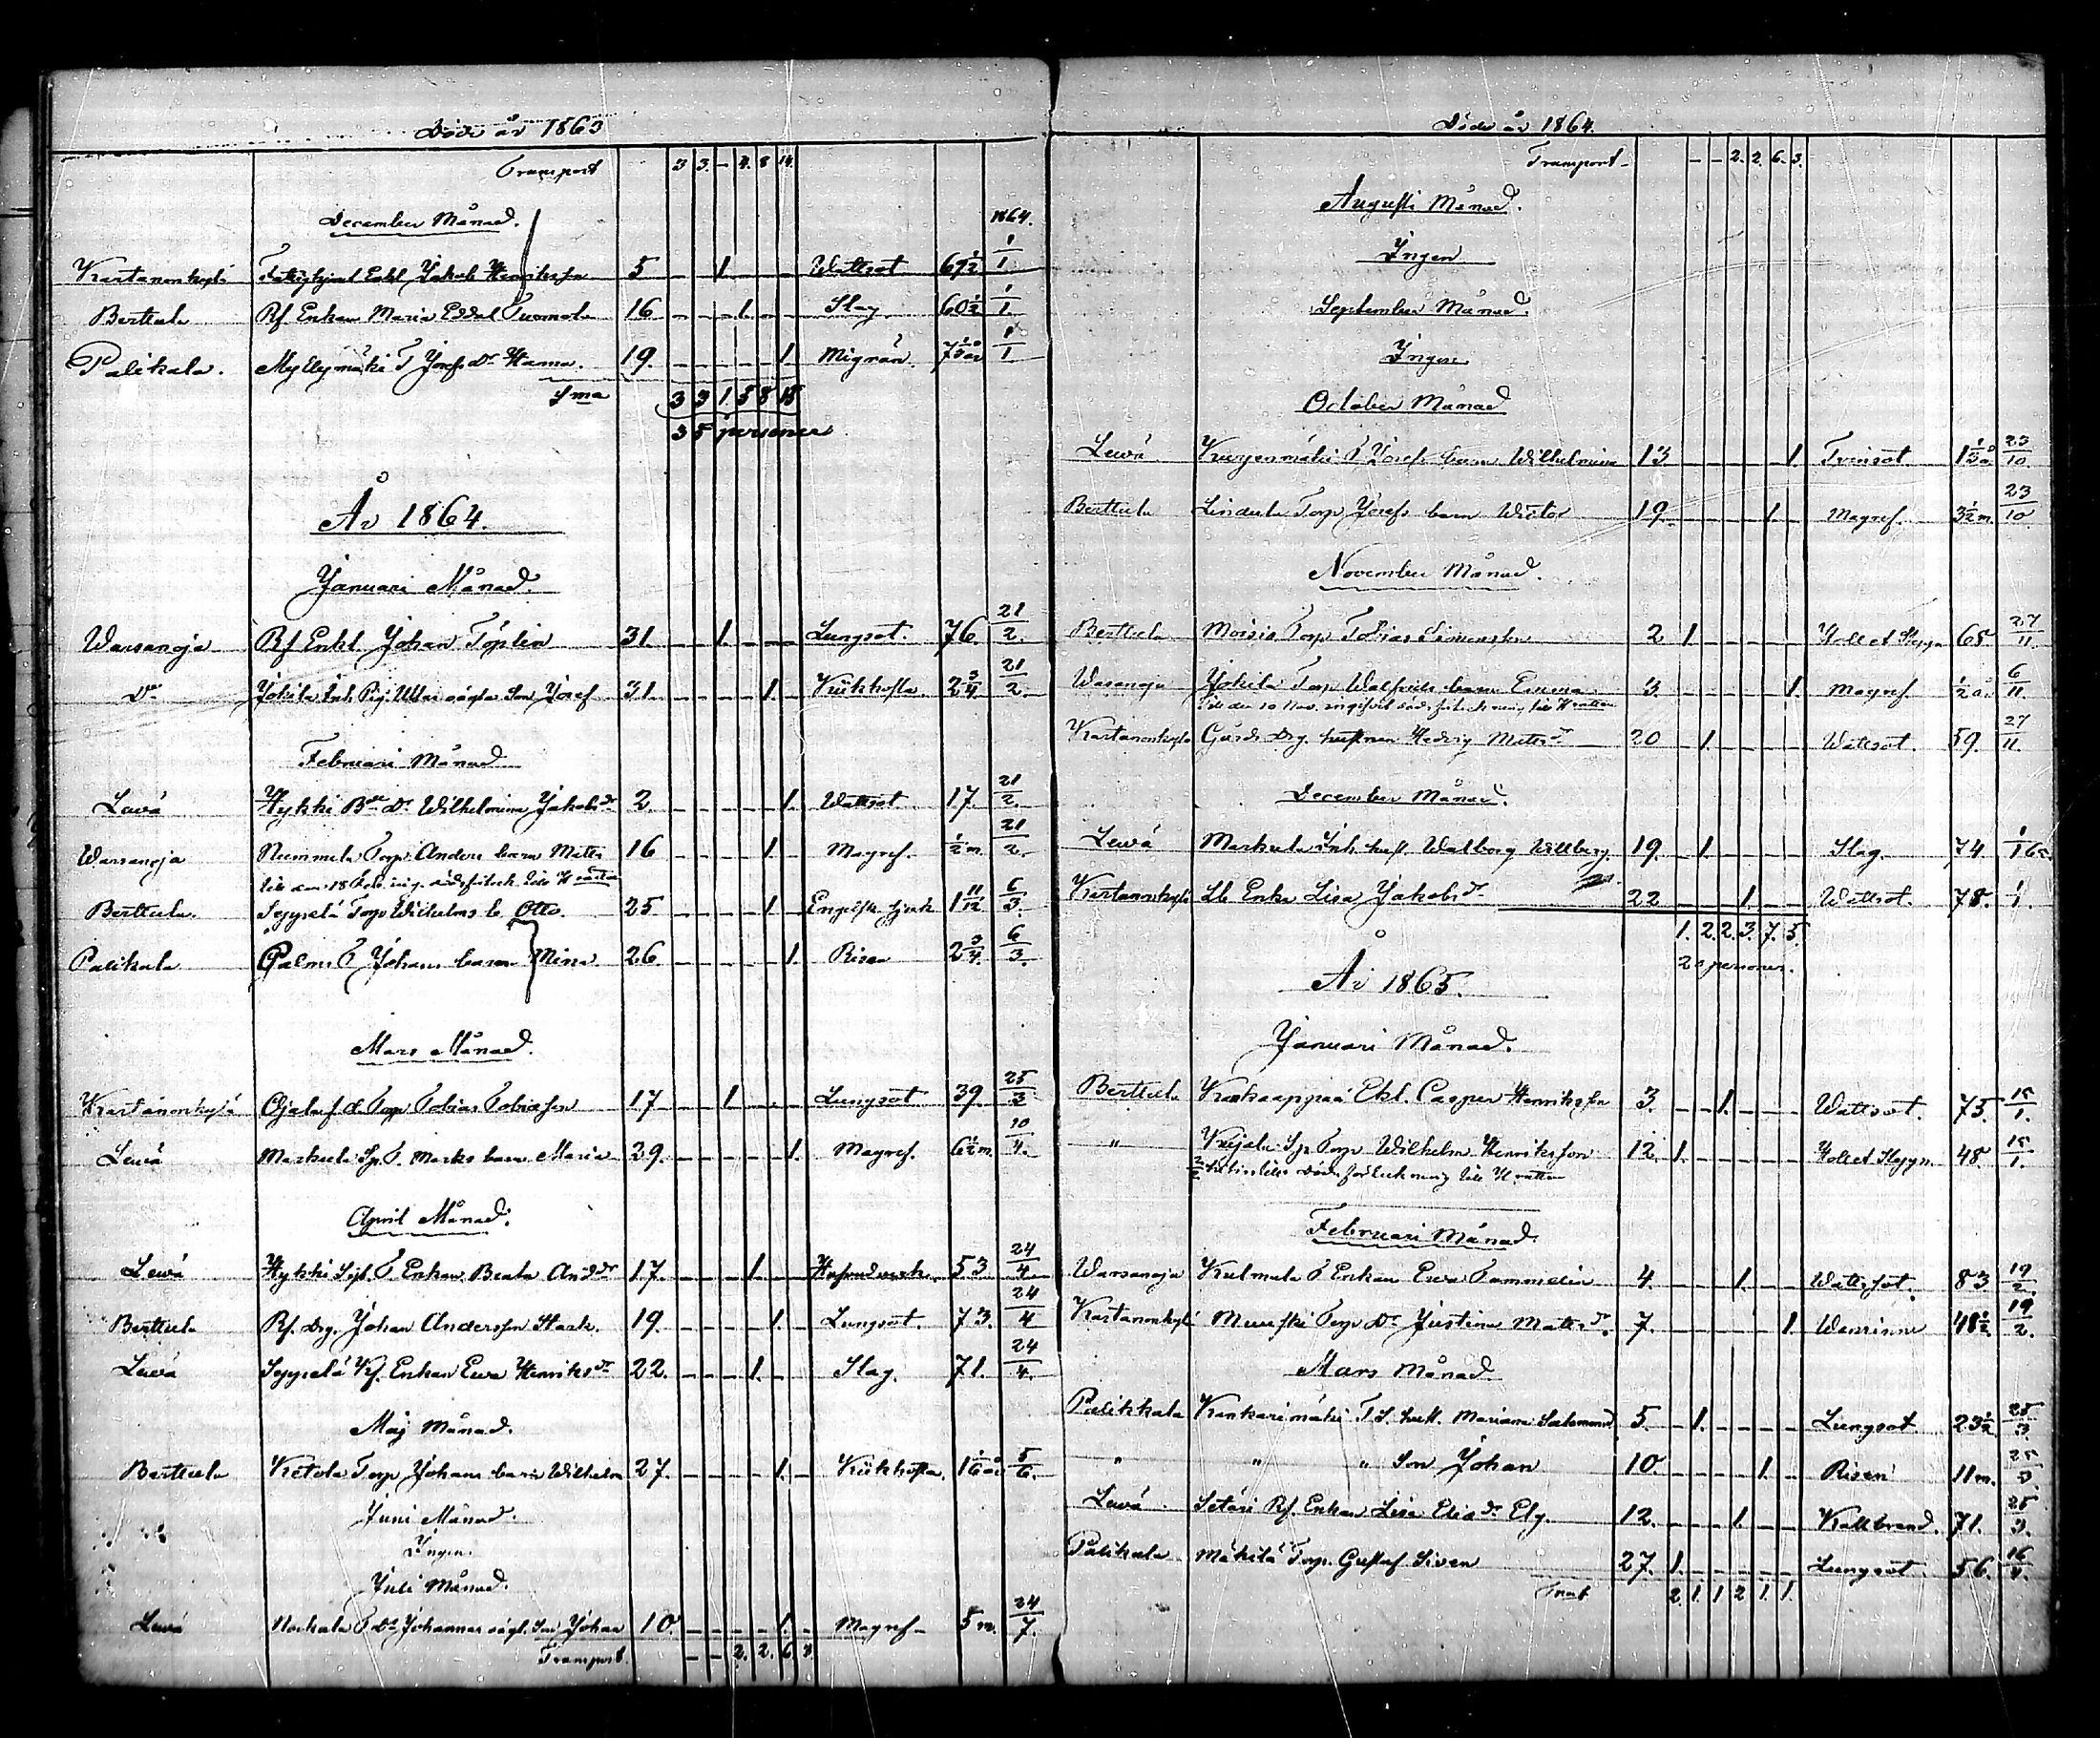 Döde år 1863
Transport 3 3. – 4. 8 14.
December Månad. 1864.
Kartanonkylä Enkl. Jakob Henriksson 5 – – 1. – – – Wattsot 69 1/2 1/1
Berttula Rf. Enkan Maria Tuomola 16 – – – 1. – – Slag 60 1/2 1/1
Palikala. Myllymäki T. Josefs Dr Hanna. 19. – – – – – 1. Migrän. 1/1
Sma 3 3 1. 5 8 15
35 personer
År 1864.
Januari Månad.
Warsanoja Rf Enkl. Johan Töplin 31. – – 1. – – – Lungsot. 76. 21/2.
Do Jokila Inh. Pig. Ullas oägta Son Josef 31. – – – – 1. – Kikhosta. 2 3/4. 21/2.
Februari Månad
Lewä Hykki Bde Dr. Wilhelmina Jakobsdr 2. – – – – – 1. Wattsot 17. 21/2.
Warsanoja Nummela Torp. Anders barn Matts 16 – – – – 1. – Magref. 1/2 m. 21/2.
Berttula. Seppelä Torp Wilhelms b. Otto. 25. – – – – 1. – Engelska sjuk 1 11/12 6/3.
Palikala Palms T Johans barn Mina. 26. – – – – – 1. Risen 2 3/4. 6/3.
Mars Månad.
Kartanonkylä Torp Tobias Tobiasson 17. – – 1. – – – Lungsot 39. 25/3
Lewä Markula Sp. T. Marks barn Maria 29. – – – – – 1. Magref. 6 1/2 m. 10/4.
April Månad.
Lewä Hykki T Enkan Beata Andsdr 17. – – – 1. – – 53 24/4.
Berttula Rf. Drg. Johan Andersson Stark. 19. – – – – 1. – Lungsot. 73. 24/4
Lewä Seppelä Rf. Enkan Ewa Henriksdr 22. – – – 1. – – Slag. 71. 24/4.
Maj Månad.
Berttula Ketola Torp Johans barn Wilhelm 27. – – – – 1. – Kikhosta. 5/6.
Juni Månad.
Ingen.
Juli Månad.
Lewä Johannas oägt. Son Johan 10. – – – – 1. – Magref – 5 m. 24/7.
Transport. – – 2. 2. 6 3.
Döde år 1864.
Transport – – – 2. 2. 6. 3.
Augusti Månad.
Ingen
September Månad.
Ingen
October Månad
Lewä Kurjenmäki T Josefs barn Wilhelmina 13 – – – – – 1. Tvinsot 23/10
Berttula Lindula Torp Josefs barn Wictor 19. – – – – 1. – Magref. 3 1/2 m. 23/10
November Månad.
Berttula Moisio Torp Tobias Simonsson 2 1. – – – – – Håll et Stygn 65. 27/11.
Warsanoja Jokila Torp Walfrids barn Emma. 3. – – – – – 1. Magref. 6/11.
Kartanonkylä Gårds Drg. hustrun Hedvig Mattsdr 20 – 1. – – – – Wattsot. 59. 27/11.
December Månad.
Lewä Markula Inh. hust. Walborg Willberg 19. – 1. – – – – Slag. 74
Kartanonkylä Enka Lisa Jakobsdr 22 – – – 1. – – Wattsot. 78. 1/1.
1. 2. 2. 3. 7. 5.
20 personer.
År 1865.
Januari Månad.
Berttula Kaskaappaa Ekl. Casper Henriksson 3. – – 1. – – – Wattsot. 75. 15/1.
" Torp Wilhelm Henriksson 12. 1. – – – – – Håll et Stygn. 48. 15/1.
Februari Månad.
Warsanoja Kulmala T Enkan Ewa Tammelin 4. – – – 1. – – Wattsot. 83 19/2.
Kartanonkylä Torp Dr Justina Mattsdr. 7. – – – – – 1. 48 1/2. 19/2.
Mars Månad
Palikkala Kankarimäki T. S. hust. Mariana Salomonsd 5. – 1. – – – – Lungsot 23 1/2 25/3.
" " " Son Johan 10. – – – – 1. – Risen 11 m. 25/3
Lewä Setäri Rf. Enkan Lisa Eliadr Elg. 12. – – – 1. – – Kallbrand. 71. 25/3.
Palikala Mäkilä Torp. Gustaf Siven 27. 1. – – – – – Lungsot. 56. 16/4.
Trnt 2. 1. 1 2 1. 1.